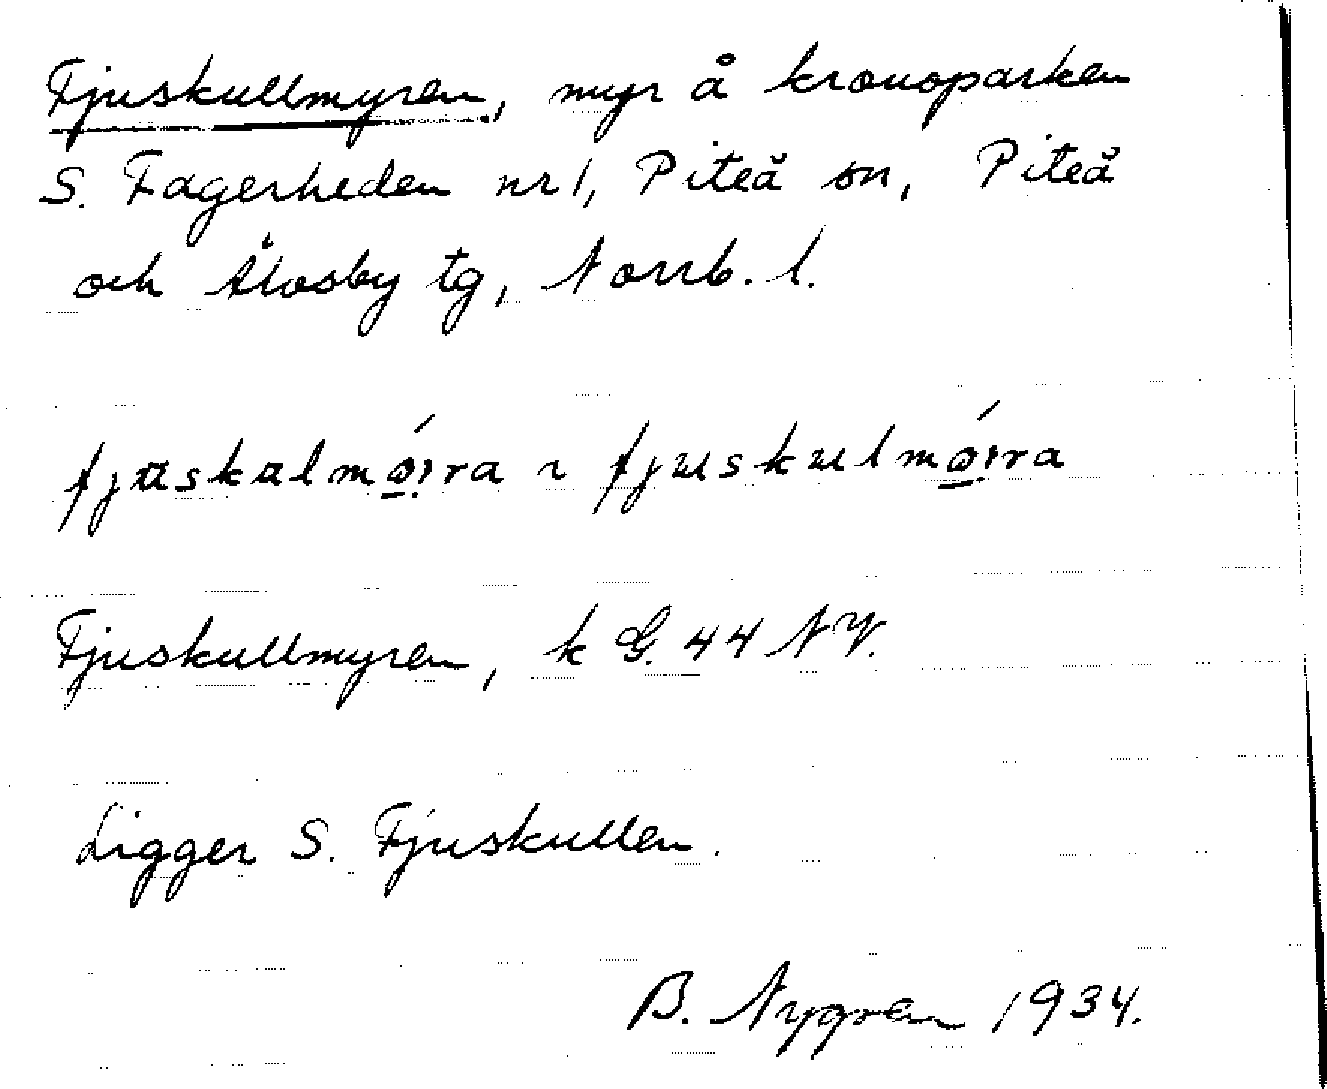 Fjuskullmyren, myr å kronoparken
S. Fagerheden nr 1, Piteå sn, Piteå
och Älvsby tg, Norrb. l.
fjuskalmǿ̱ira ~ fjuskulmǿ̱ira
Fjuskullmyren, k G. 44 NV.
Ligger S. Fjuskullen.
B. Nygren 1934.